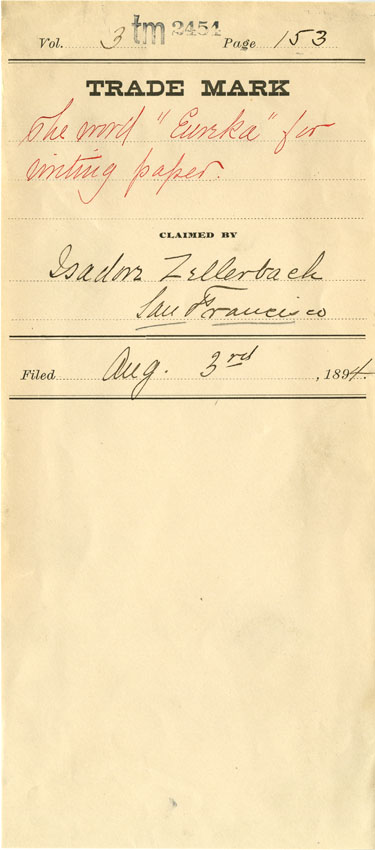 Vol. 3 tm 2454 Page 153
TRADE MARK
The word "Eureka" for
writing paper.
CLAIMED BY
Isadore Zellerbach
San Francisco
Filed Aug. 3rd, 1894.